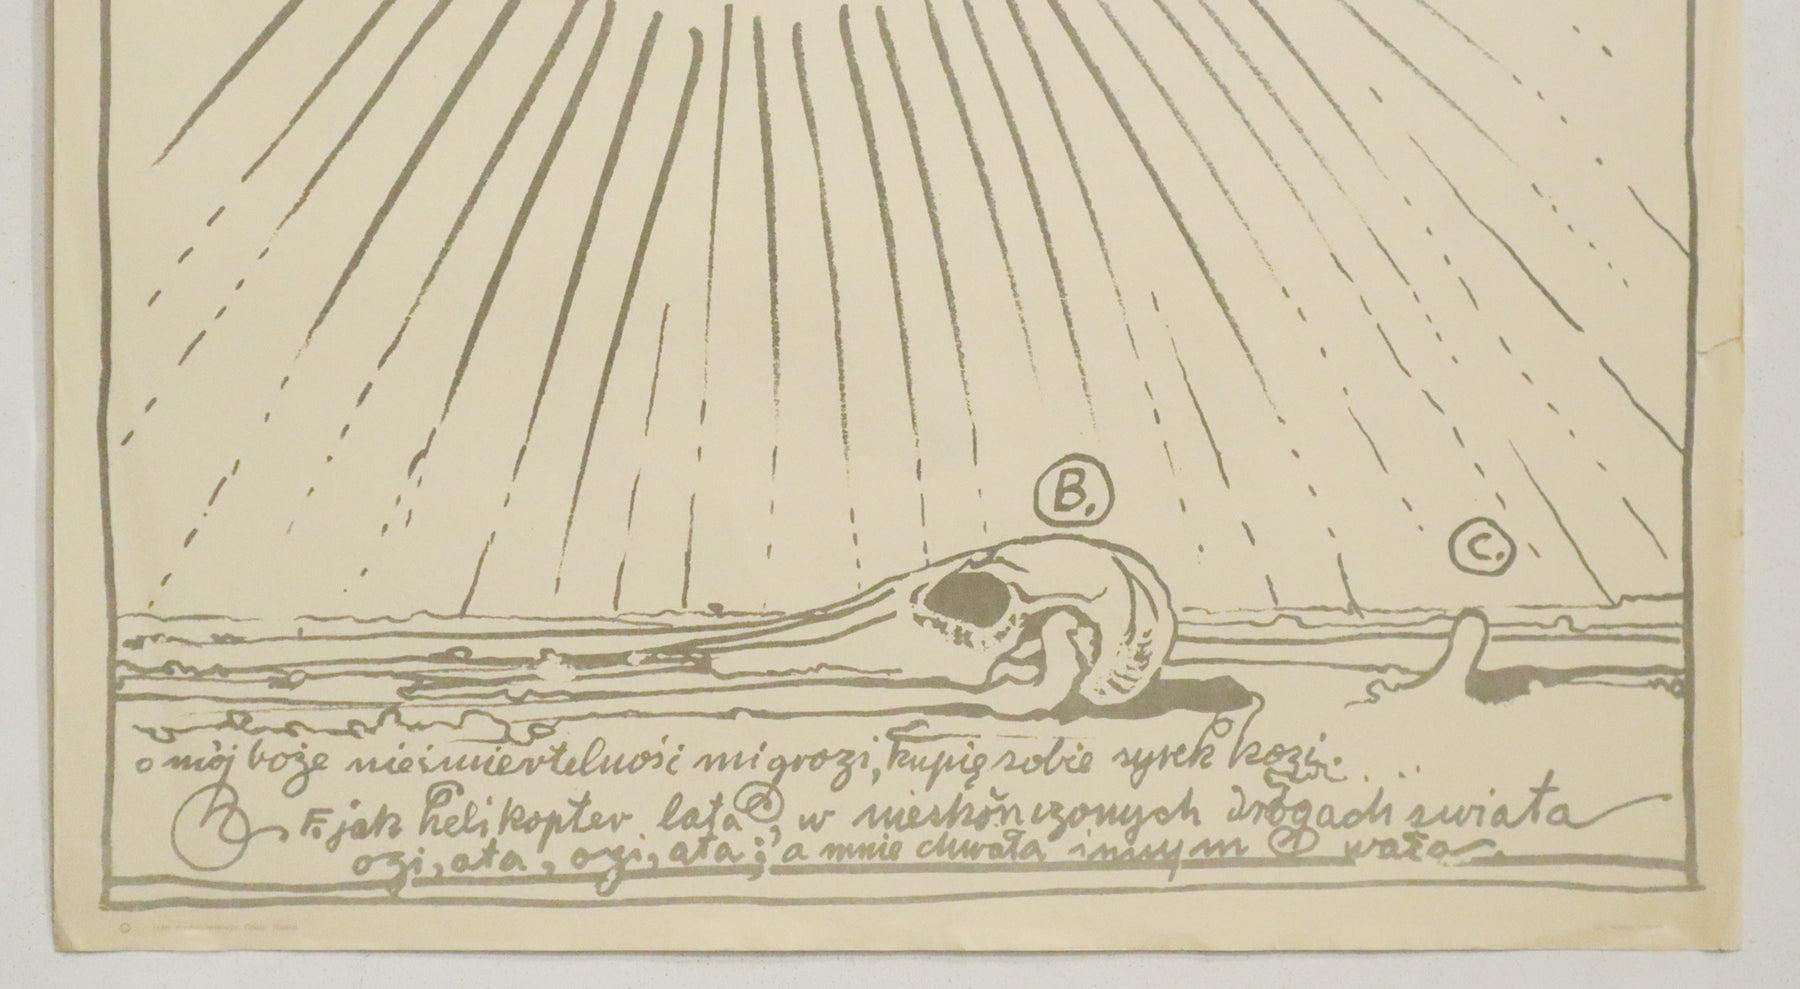 B.
C.
o mój boże nieśmiertelność mi grozi, kupię sobie syrek kozi.
F. jak helikopter lata, w nieskończonych drogach świata
ozi, ata, ozi, ata; a mnie chwała innym wała.